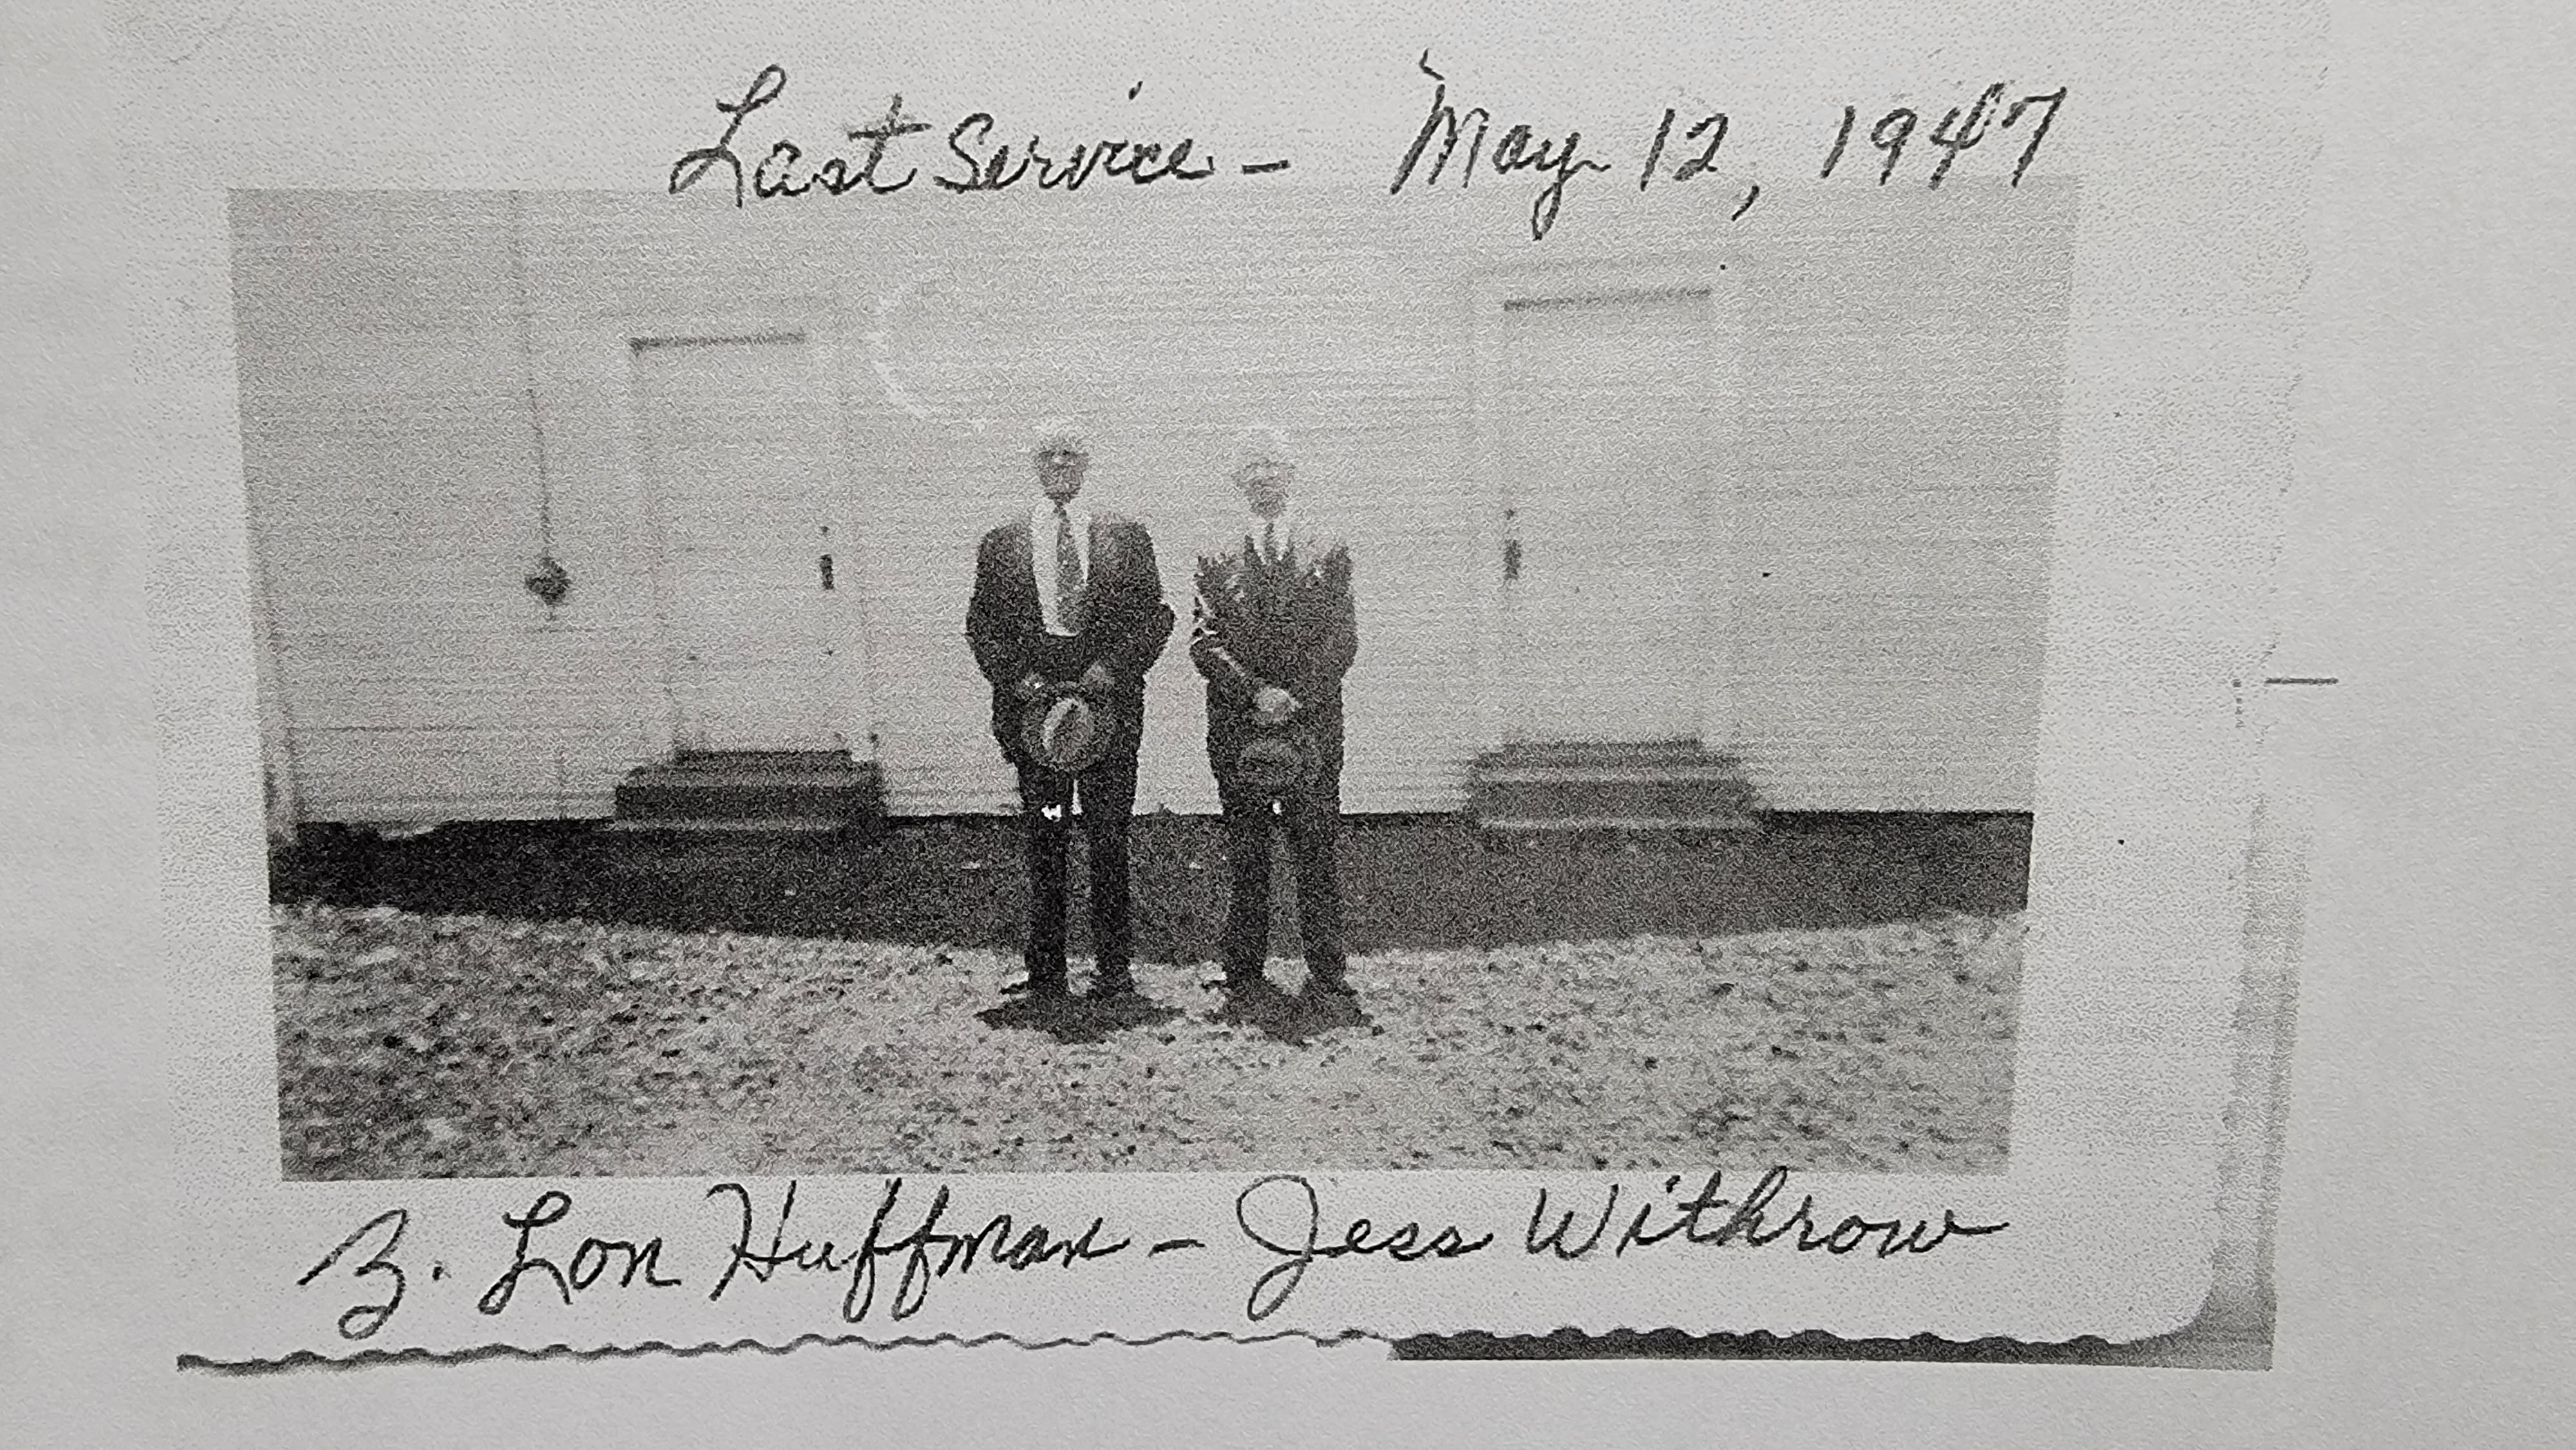 Last Service - May 12, 1947
Z. Lon Huffman - Jess Withrow